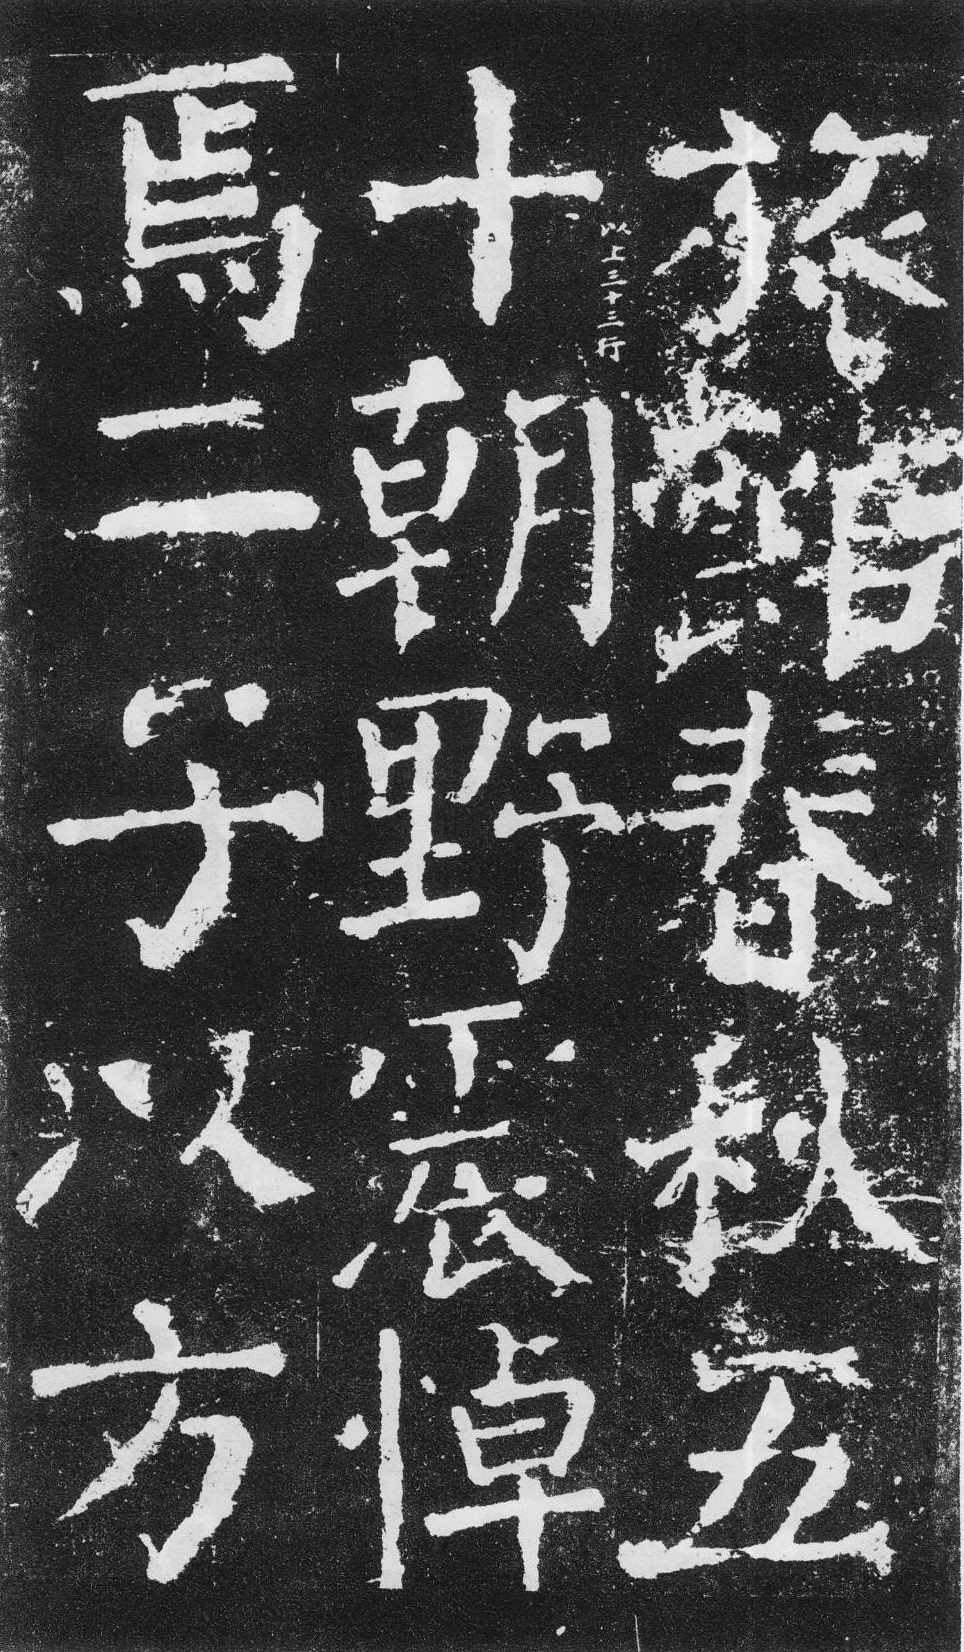 旅館春秋五
以上三十三行
十朝野震悼
焉二子以方